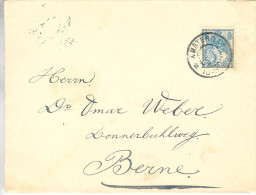 AMSTERDAM
Herrn
Dr Omar Weber
Donnerbühlweg.
Berne